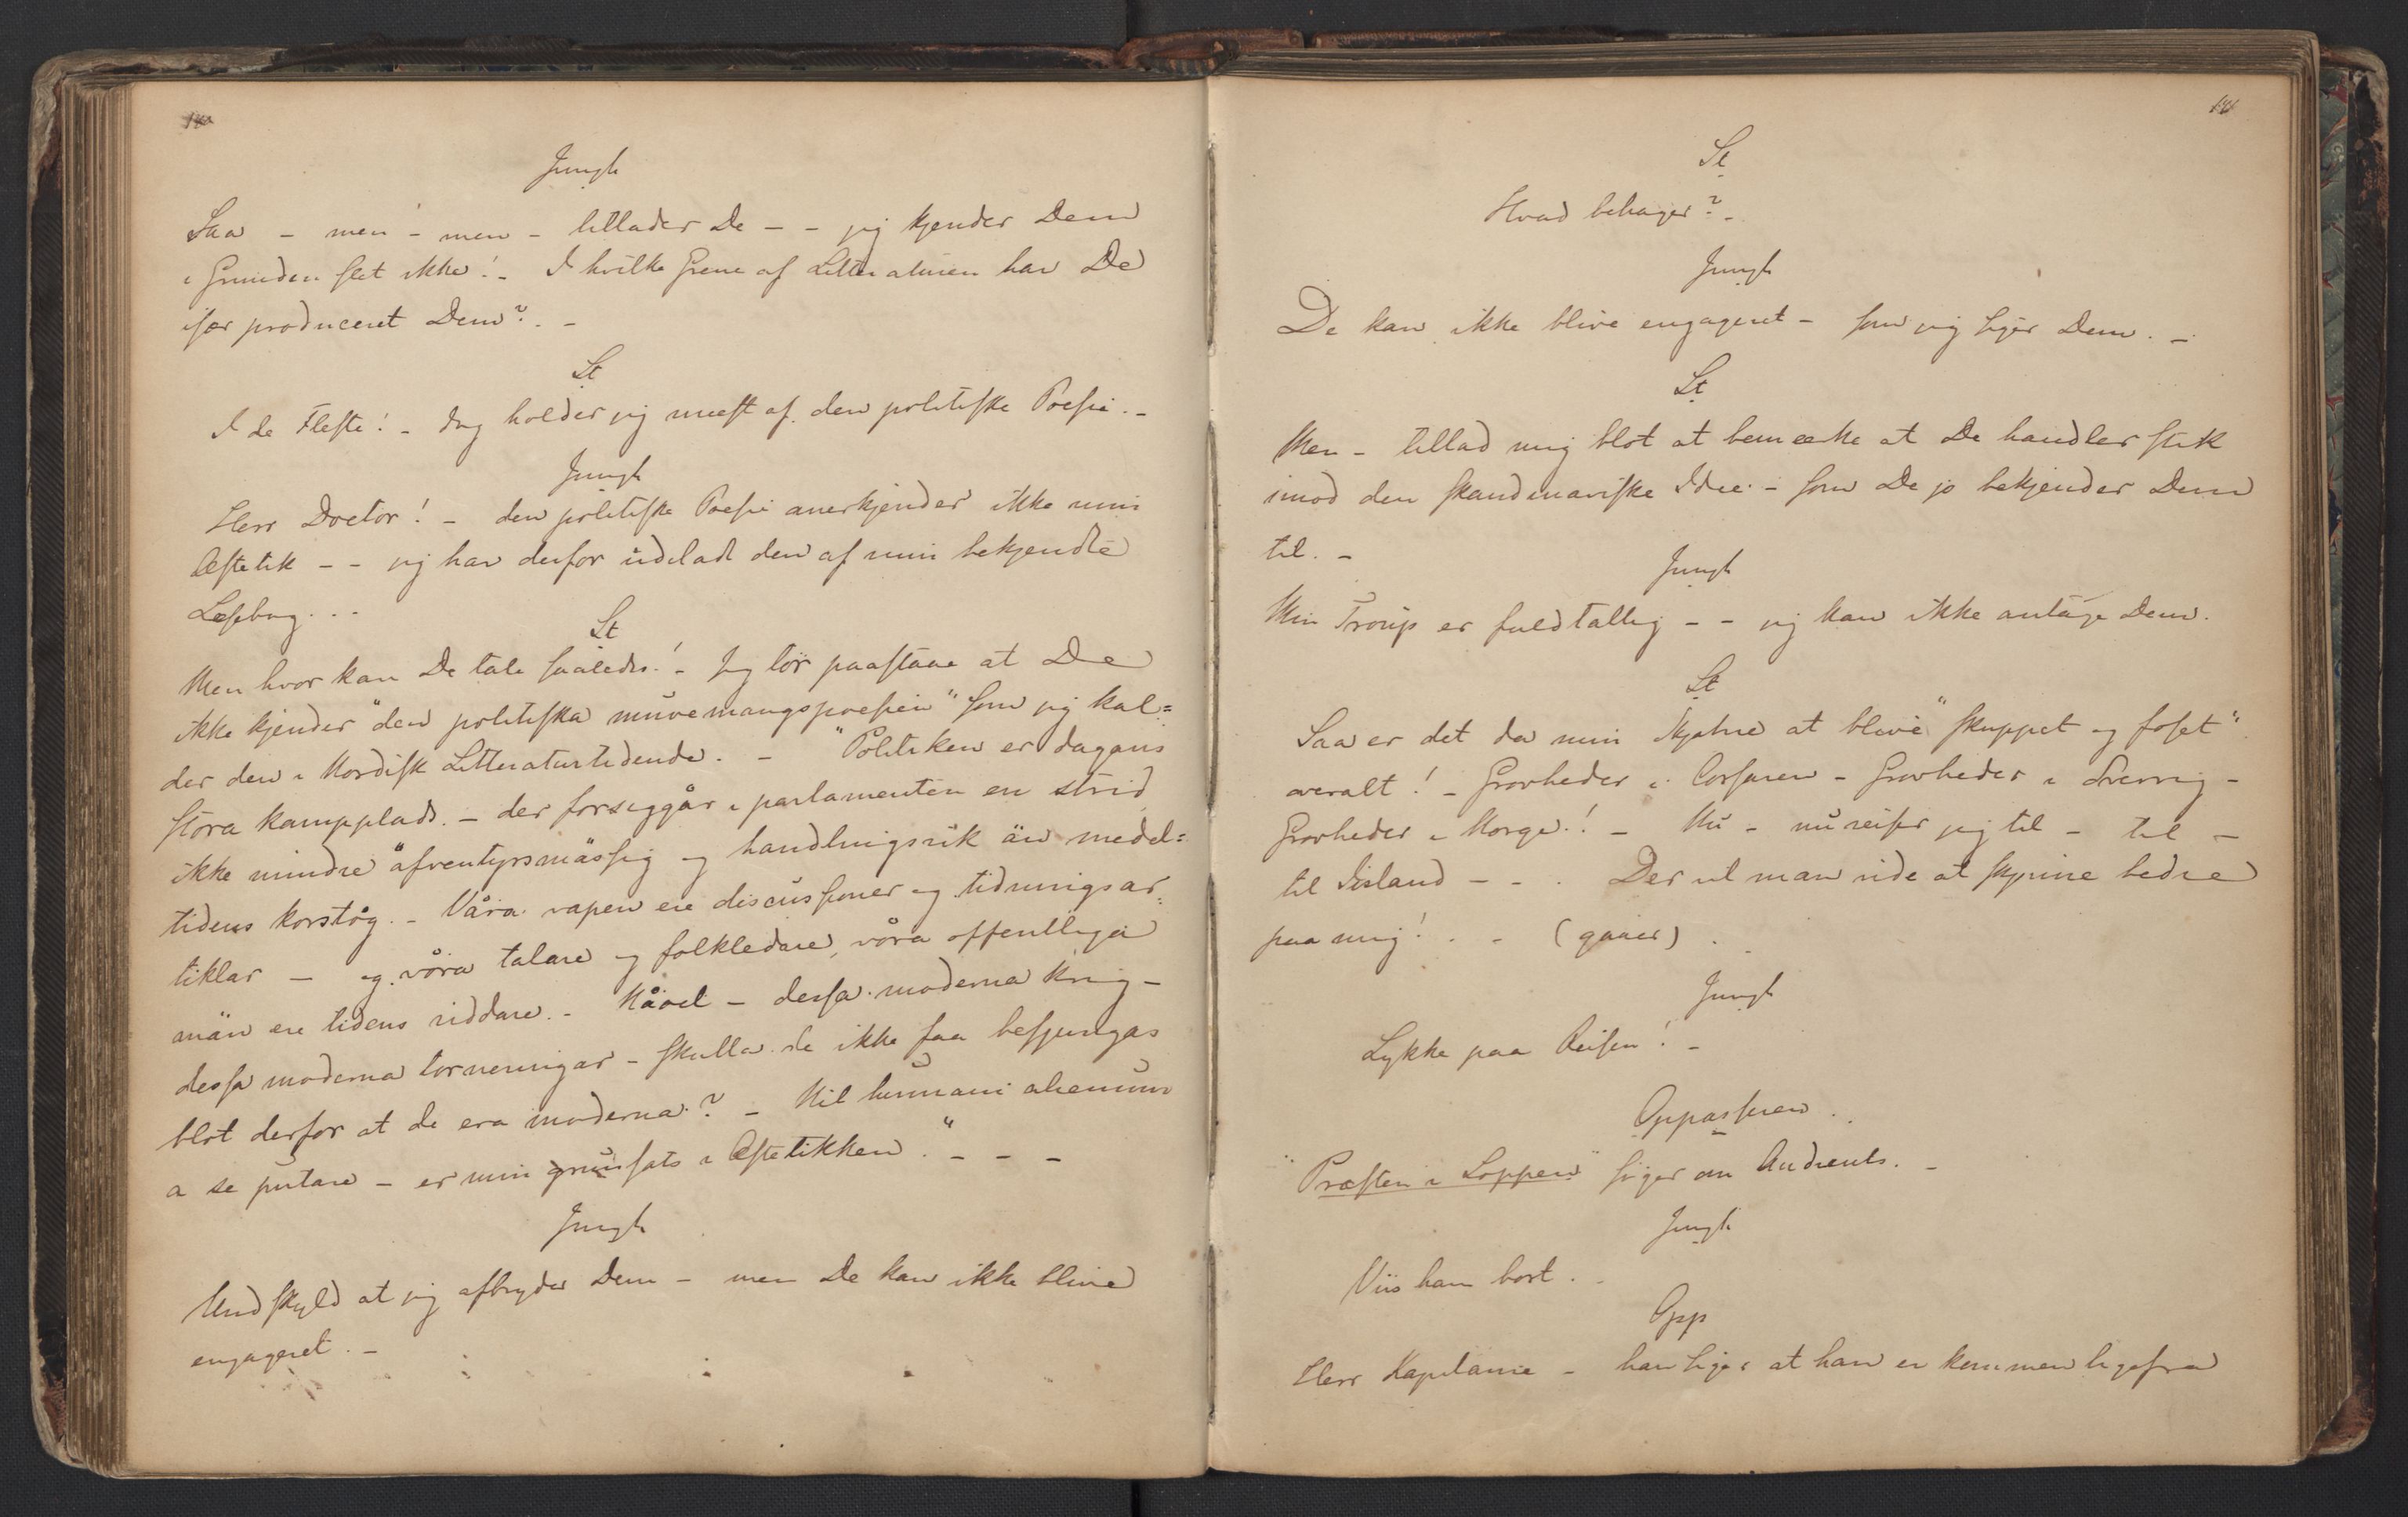 Jungh
Saa – men – men – tillader De – – jeg kjender Dem
i Grunden slet ikke! – I hvilke Grene af Litteraturen har De
især produceret Dem? –
St
I de Fleste! – dog holder jeg meest af den politiske Poesie. –
Jungh
Herr Doctor! – den politiske Poesie anerkjender ikke min
Æstetik – – jeg har derfor udeladt den af min bekjendte
Læsebog. . –
St
Men hvor kan De tale saaledes! – Jeg tör paastaae at De
ikke kjender "den politiska muvemangspoesien" som jeg kal=
der den i Nordisk Litteraturtidende. – "Politiken er dagans
stora kampplads. – der forsiggår i parlamenten en strid
ikke mindre äfventyrsmässig og handlingsrik än medel=
tidens korståg. – Våra vapen ere discussioner og tidningsar=
tiklar – og våra talare og folkledare, våra offentliga
män ere tidens riddare. – Nåvel – dessa moderna krig –
dessa moderna torneringar – skulla de ikke faa besjungas
blot derfor at de era moderna? – Nil humani alienum
a se putare – er min grunsats i Æstetikken." – – –
Jungh
Undskyld at jeg afbryder Dem – men De kan ikke blive
engageret. –
141
St
Hvad behager? –
Jungh
De kan ikke blive engageret – som jeg siger Dem. –
St
Men – tillad mig blot at bemærke at De handler stik
imod den skandinaviske Idee – som De jo bekjender Dem
til. –
Jungh
Min Troup er fuldtallig – – jeg kan ikke antage Dem.
St
Saa er det da min Skjebne at blive "skuppet og foset"
overalt! – Grovheder i Corsaren – Grovheder i Sverrig –
Grovheder i Norge! – Nu – nu reiser jeg til – til –
til Island – – . Der vil man vide at skjønne bedre
paa mig! . – (gaaer) .
Jungh
Lykke paa Reisen! –
Oppasseren.
"Præsten i Loppen" söger om Audients. –
Jungh
Viis ham bort. .
Opp
Herr Kapitaine – han siger at han er kommen ligefra